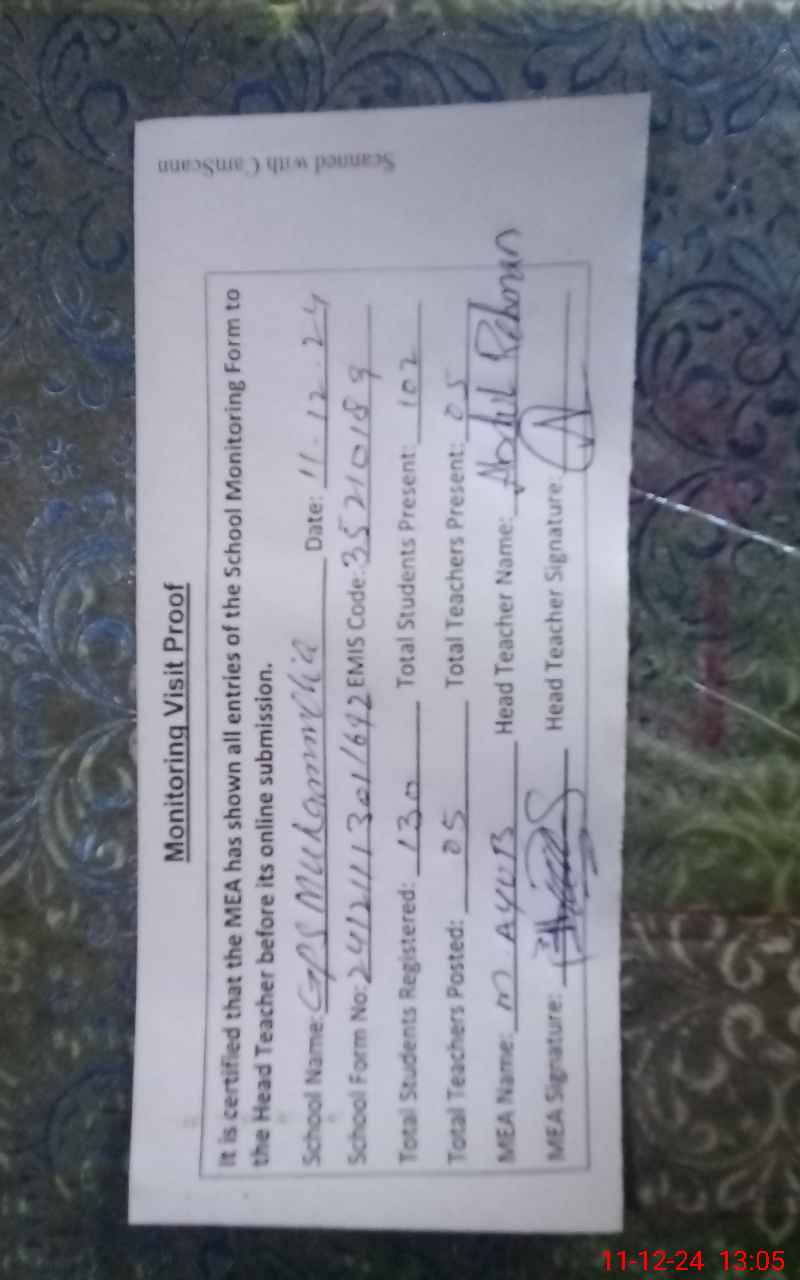 Scanned with CamScann
Monitoring Visit Proof
It is certified that the MEA has shown all entries of the School Monitoring Form to
the Head Teacher before its online submission.
School Name: GPS Date: 11-12-24
School Form No: 241211301692 EMIS Code: 35210189
Total Students Registered: 130 Total Students Present: 102
Total Teachers Posted: 05 Total Teachers Present: 05
MEA Name: M. AYUB Head Teacher Name: Abdul Rehman
MEA Signature: Head Teacher Signature:
11-12-24 13:05